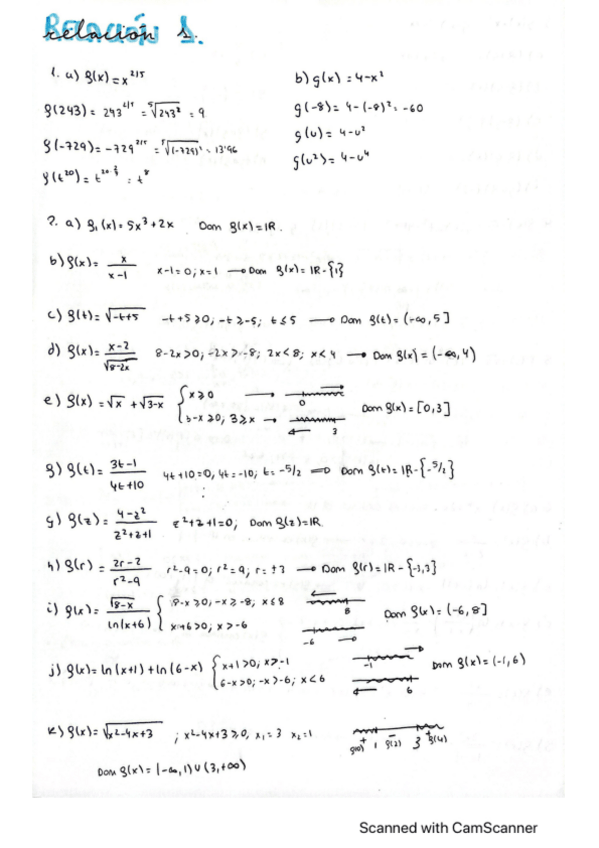 Relación 1.
1. a) f(x) = x^{2/5}
f(243) = 243^{2/5} = ⁵√243² = 9
f(-729) = -729^{2/5} = ⁵√(-729)² = 13'96
f(t^{20}) = t^{20·2/5} = t^8
b) g(x) = 4-x²
g(-8) = 4-(-8)² = -60
g(u) = 4-u²
g(u²) = 4-u⁴
2. a) f₁(x) = 5x³+2x Dom f(x) = IR.
b) f(x) = x/(x-1) x-1=0; x=1 → Dom f(x) = IR-{1}
c) f(t) = √(-t+5) -t+5≥0; -t≥-5; t≤5 → Dom f(t) = (-∞,5]
d) f(x) = (x-2)/√(8-2x) 8-2x>0; -2x>-8; 2x<8; x<4 → Dom f(x) = (-∞,4)
e) f(x) = √x + √(3-x) { x≥0 → 0
3-x≥0; 3≥x → 3 Dom f(x) = [0,3]
f) f(t) = (3t-1)/(4t+10) 4t+10=0; 4t=-10; t=-5/2 → Dom f(t) = IR-{-5/2}
g) f(z) = (4-z²)/(z²+z+1) z²+z+1=0; Dom f(z) = IR.
h) f(r) = (2r-2)/(r²-9) r²-9=0; r²=9; r=±3 → Dom f(r) = IR-{-3,3}
i) f(x) = √(8-x)/ln(x+6) { 8-x≥0; -x≥-8; x≤8 8
x+6>0; x>-6 -6 Dom f(x) = (-6,8]
j) f(x) = ln(x+1) + ln(6-x) { x+1>0; x>-1 -1
6-x>0; -x>-6; x<6 6 Dom f(x) = (-1,6)
k) f(x) = √(x²-4x+3) ; x²-4x+3≥0, x₁=3 x₂=1 + - +
f(0) 1 f(2) 3 f(4)
Dom f(x) = (-∞,1) ∪ (3,+∞)
Scanned with CamScanner